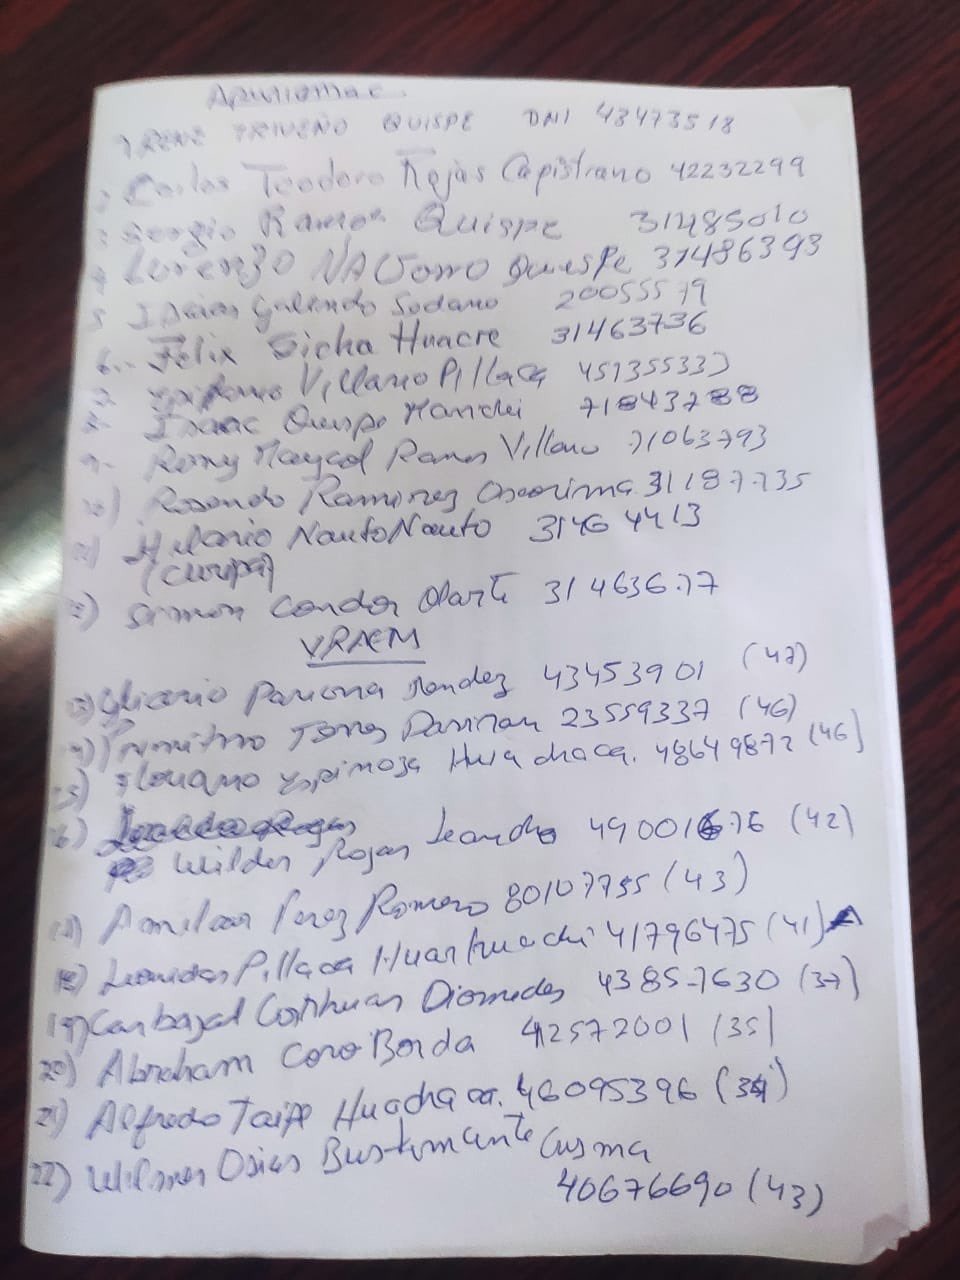 Apurimac
1 RENE TRIVEÑO QUISPE DNI 43473518
2 Carlos Teodoro Rojas Capistrano 42232299
3 Sergio Ramos Quispe 31485010
4 Lorenzo NAVarro Quispe 31486393
5 Isaias Galindo Sodano 20055579
6.- Felix Sicha Huacre 31463736
7. Epifanio Villano Pillaca 45135533
8- Isaac Quispe 71843788
9- Romy Maycol Ramos Villano 71063793
10) Rosendo Ramirez Oscorima 31187735
11) Hilario Nauto Nauto 31464413
(curpa)
12) Simon Condor Olarte 31463677
VRAEM
13) Glicerio Pariona Mendez 43453901 (47)
14) Primitivo Torres 23559337 (46)
15) Floriano Espinoza Huachaca. 48649872 (46)
16) Leandro 49001676 (42)
Wilder Rojas
Amilcar Perez Romero 80107755 (43)
18) Leonidas Pillaca 41796475 (41)
19) Carbajal Diomedes 43857630 (37)
20) Abraham Coro Borda 42572001 (35)
21) Alfredo Taipe Huachaca. 46095396 (34)
22) Wilmer Osias Bustamante Cusma
40676690 (43)